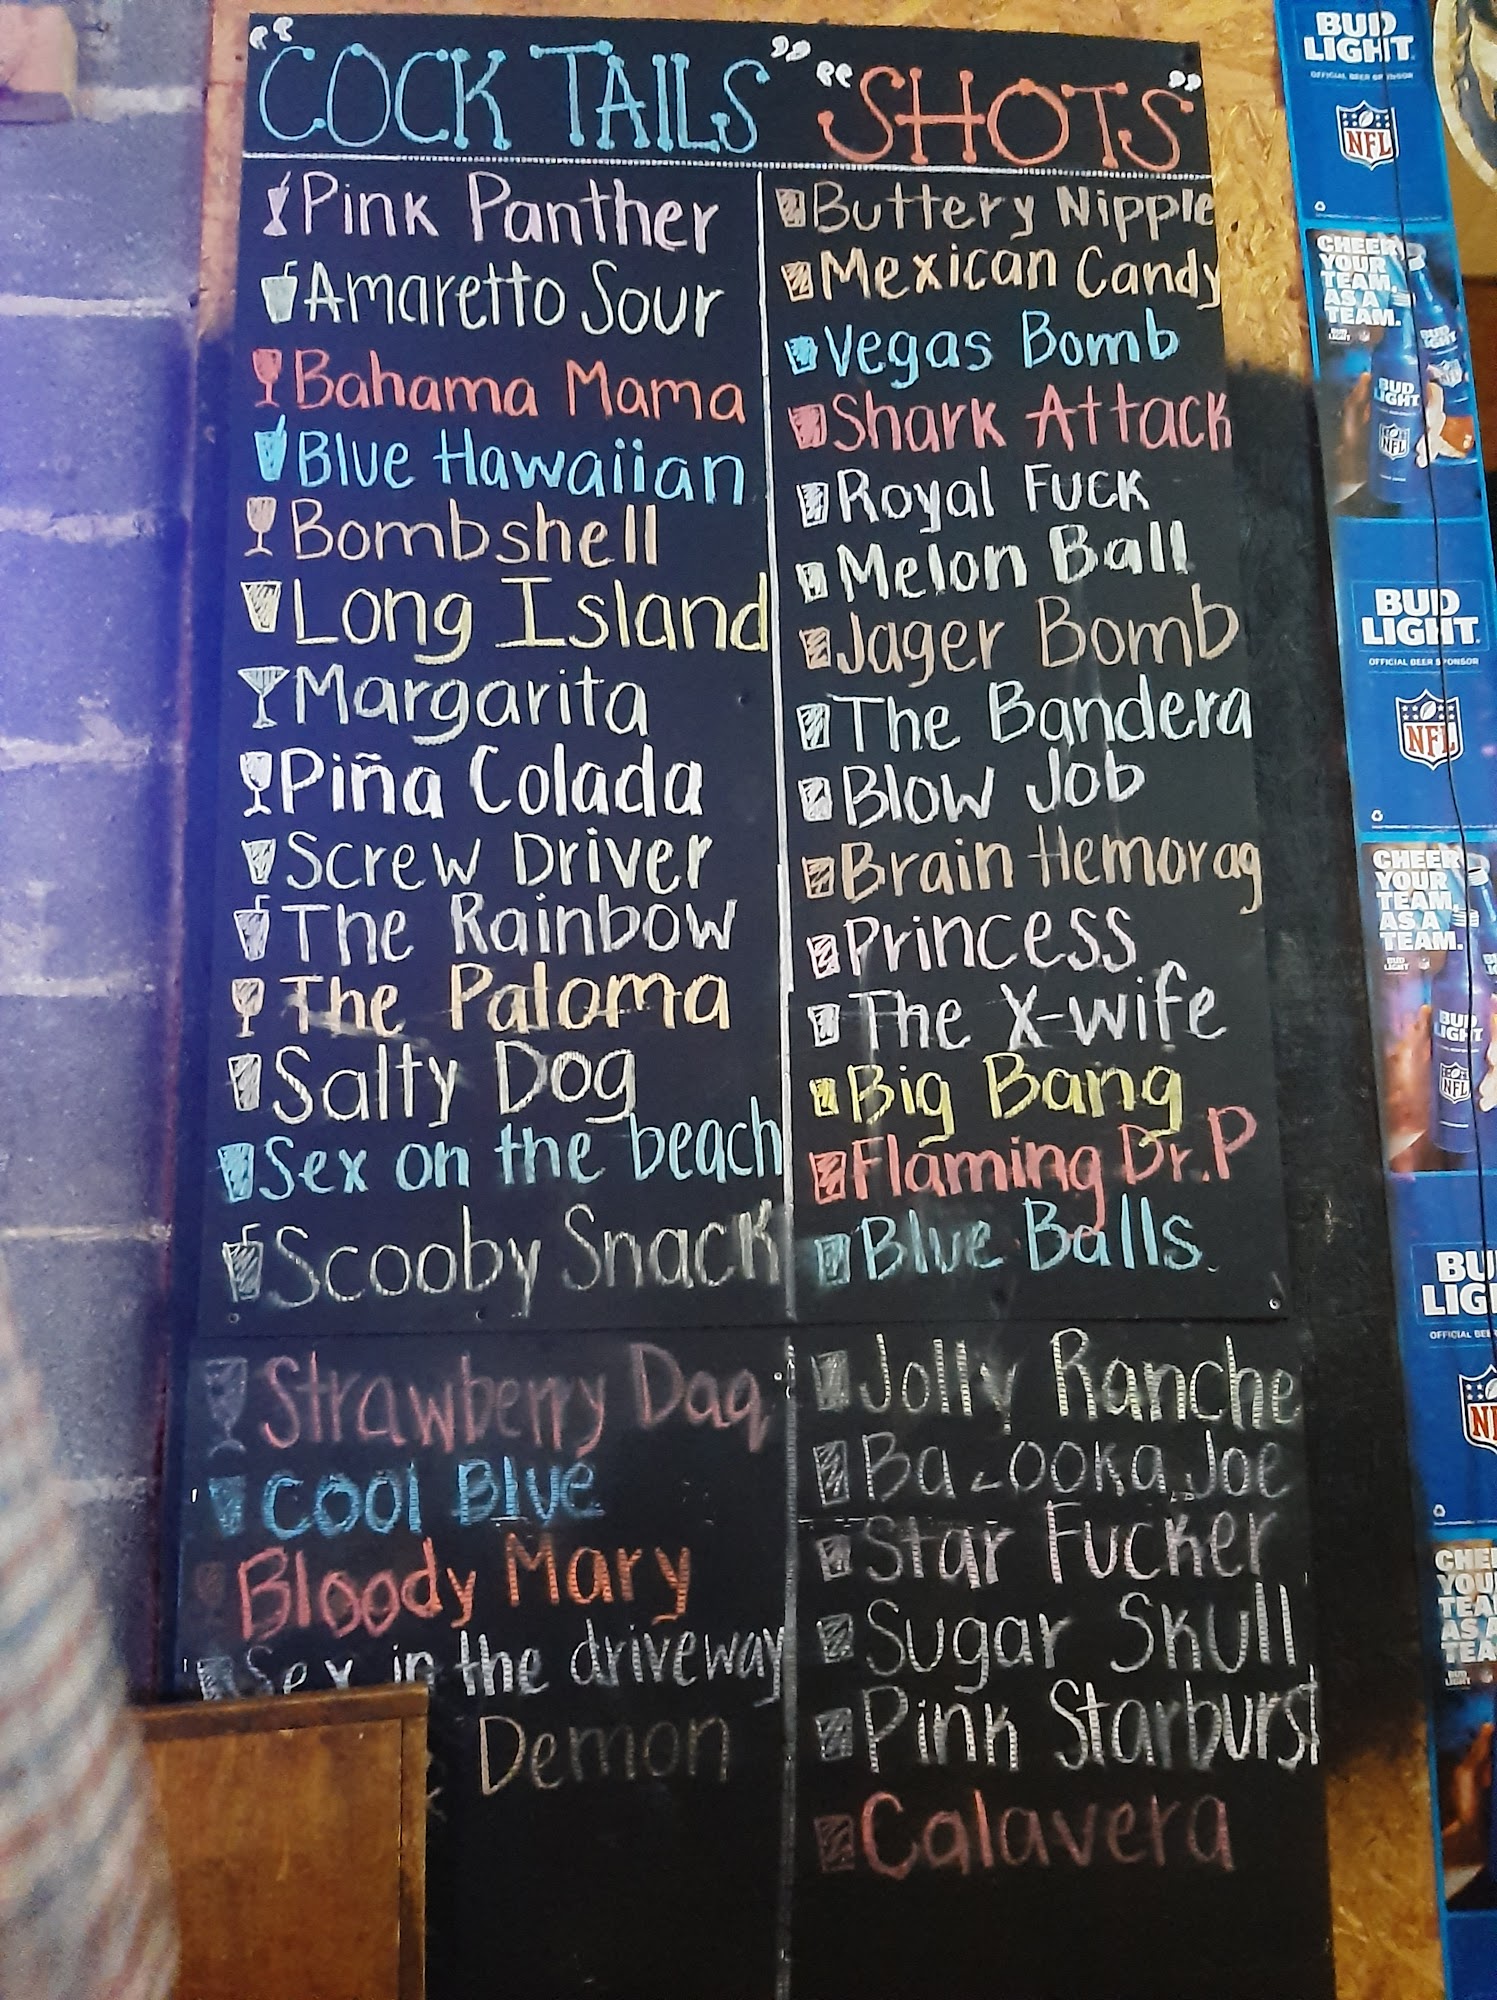 "COCK TAILS"
Pink Panther
Amaretto Sour
Bahama Mama
Blue Hawaiian
Bombshell
Long Island
Margarita
Piña Colada
Screw Driver
The Rainbow
The Paloma
Salty Dog
Sex on the beach
Scooby Snack
Strawberry Daq
Cool Blue
Bloody Mary
Sex in the driveway
Demon
"SHOTS"
Buttery Nipple
Mexican Candy
Vegas Bomb
Shark Attack
Royal Fuck
Melon Ball
Jager Bomb
The Bandera
Blow Job
Brain Hemorag
Princess
The X-wife
Big Bang
Flaming Dr.P
Blue Balls
Jolly Ranche
Bazooka Joe
Star Fucker
Sugar Skull
Pink Starburst
Calavera
BUD
LIGHT
OFFICIAL BEER SPONSOR
NFL
CHEER
YOUR
TEAM.
AS A
TEAM.
BUD
LIGHT
NFL
BUD
LIGHT
OFFICIAL BEER SPONSOR
NFL
CHEER
YOUR
TEAM.
AS A
TEAM.
BUD
LIGHT
BUD
LIGHT
NFL
BU
LIG
OFFICIAL BEE
NF
CHEE
YOU
TEA
AS A
TEA